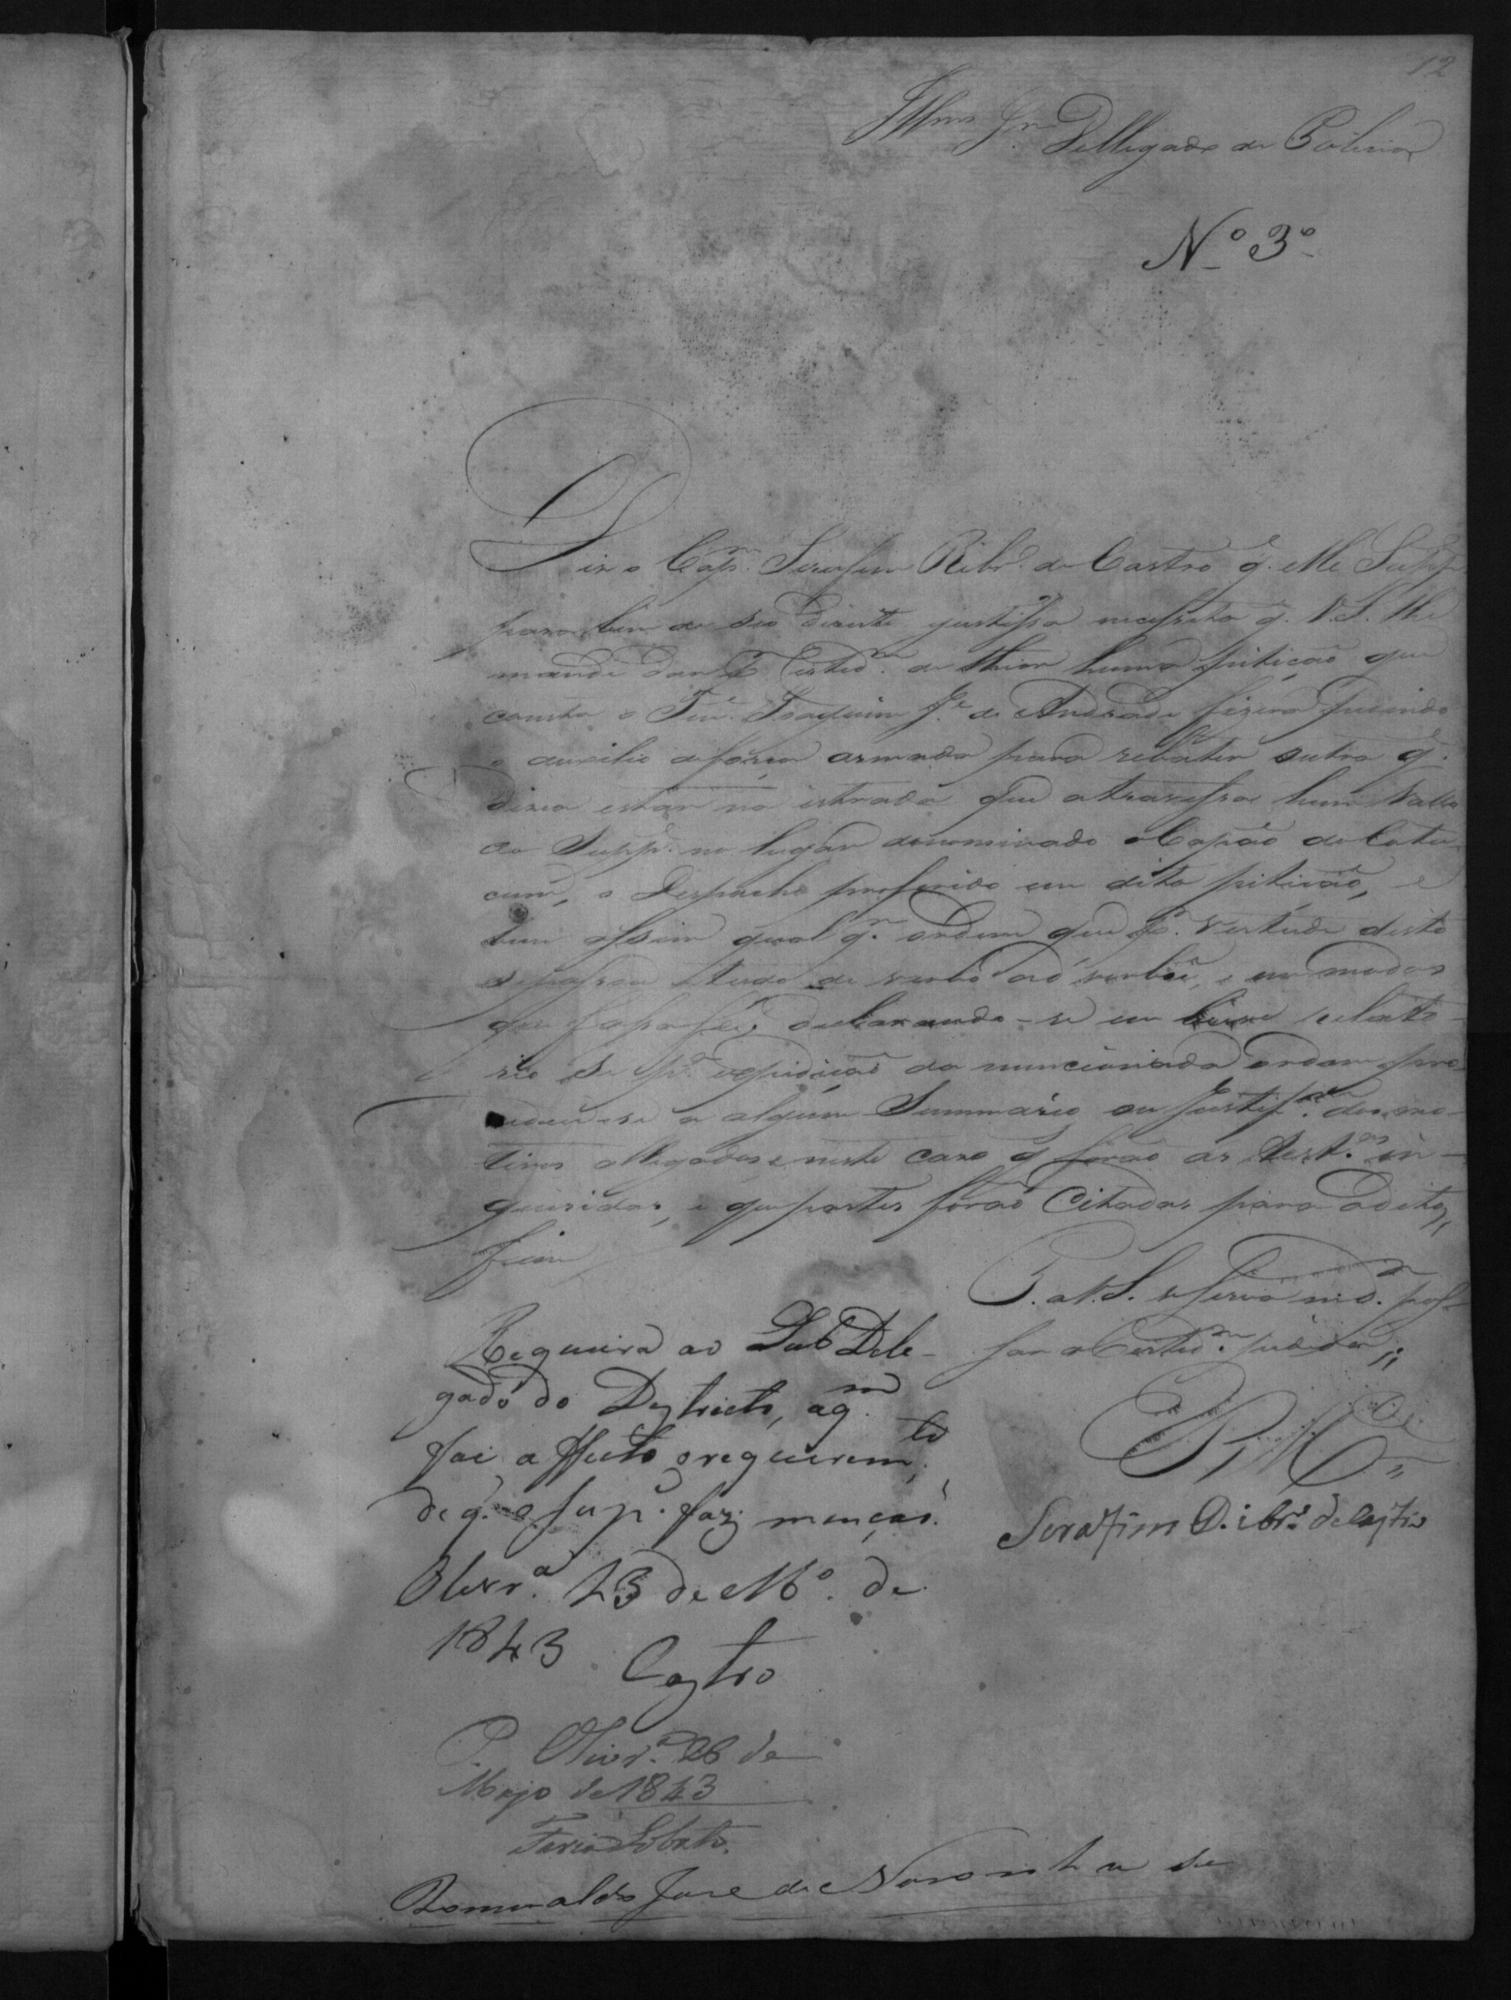 12
Illmo Snr Dellegado de Policia
No 3o
Diz o Capm. Serafim Ribro. de Castro q. elle Suppe
para bem de seo Direito e justissa necessita q. V.S. lhe
mande dar Certidm. de theor huma pitição que
consta o Tene. Joaquim Je. de Andrade fizera pedindo
o auxilio da força armada para rebater outra q.
dizia estar na estrada que atravessa hum Vallo
do Suppe. no lugar denominado o Capão do
o Despacho proferido em dita pitição, e
bem assim qual qr. ordem que pr. vertude deste
se passou tudo de verbo ad verbũ, e em modos
que faça fé, declarando-se em
rio se pa. expidição da mencionada ordem pro
cedeu-se a algum Summario ou Justifm. dos mo-
tivos allegados e neste caso q forão as Testas. in-
queridas, e que partes forão Citadas para o dito
fim
P. a V.S. se sirva md. pas-
sar a Certidm. pedida;
E R Mce
Serafim Ribro. de Castro
Requeira ao Sub Dele-
gado do Destricto, a qm.
foi affecto o requeremto.
de q. o Supe. faz menção.
Olivra. 23 de Mo. de
1843 Castro
P. Olivra. 26 de
Majo de 1843
Faria Lobato.
Romualdo Jose de Noronha